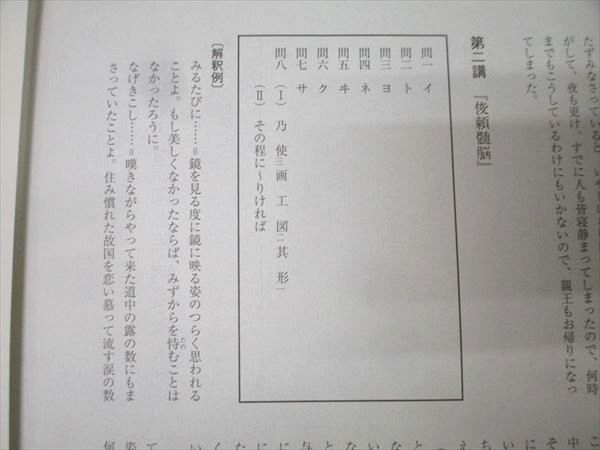 たずみなさっていると、いや
がして、夜も更け、すでに人も皆寝静まってしまったので、何時
までもこうしているわけにもいかないので、親王もお帰りになっ
てしまった。
第二講 『俊頼髄脳』
問一 イ
問二 ト
問三 ヨ
問四 ネ
問五 ヰ
問六 ク
問七 サ
問八 (Ⅰ) 乃 使三 画 工 図二 其 形一
(Ⅱ) その程に～りければ
〔解釈例〕
みるたびに……＝鏡を見る度に鏡に映る姿のつらく思われる
ことよ。もし美しくなかったならば、みずからを恃(たの)むことは
なかったろうに。
なげきこし……＝嘆きながらやって来た道中の露の数にもま
さっていたことよ。住み慣れた故国を恋い慕って流す涙の数